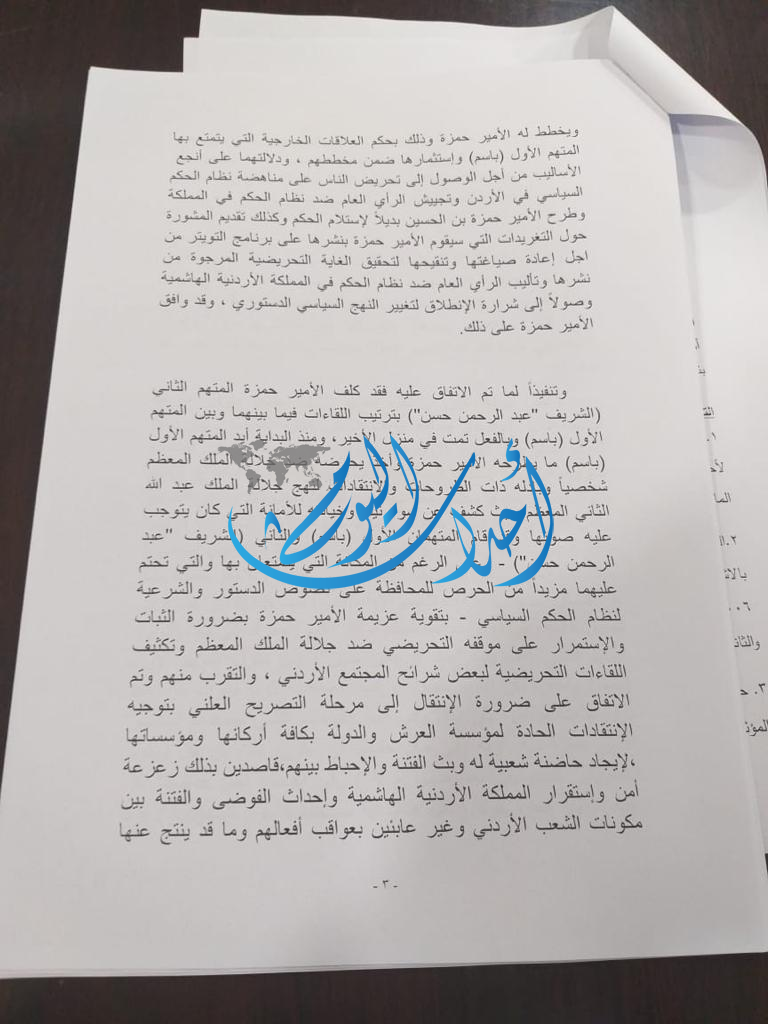 ويخطط له الأمير حمزة وذلك بحكم العلاقات الخارجية التي يتمتع بها
المتهم الأول (باسم) وإستثمارها ضمن مخططهم ، ودلالتهما على أنجع
الأساليب من أجل الوصول إلى تحريض الناس على مناهضة نظام الحكم
السياسي في الأردن وتجييش الرأي العام ضد نظام الحكم في المملكة
وطرح الأمير حمزة بن الحسين بديلاً لإستلام الحكم وكذلك تقديم المشورة
حول التغريدات التي سيقوم الأمير حمزة بنشرها على برنامج التويتر من
اجل إعادة صياغتها وتنقيحها لتحقيق الغاية التحريضية المرجوة من
نشرها وتأليب الرأي العام ضد نظام الحكم في المملكة الأردنية الهاشمية
وصولاً إلى شرارة الإنطلاق لتغيير النهج السياسي الدستوري ، وقد وافق
الأمير حمزة على ذلك.
وتنفيذاً لما تم الاتفاق عليه فقد كلف الأمير حمزة المتهم الثاني
(الشريف "عبد الرحمن حسن") بترتيب اللقاءات فيما بينهما وبين المتهم
الأول (باسم) وبالفعل تمت في منزل الأخير، ومنذ البداية أيد المتهم الأول
(باسم) ما يطرحه الأمير حمزة وأخذ يحرضه ضد جلالة الملك المعظم
شخصياً ذات الطروحات والانتقادات لنهج جلالة الملك عبد الله
الثاني المعظم كشف عن وخيانته للأمانة التي كان يتوجب
عليه صونها وقد قام المتهمان الأول (باسم) والثاني (الشريف "عبد
الرحمن حسن") - الرغم من المكانة التي يتمتعان بها والتي تحتم
عليهما مزيداً من الحرص للمحافظة على نصوص الدستور والشرعية
لنظام الحكم السياسي - بتقوية عزيمة الأمير حمزة بضرورة الثبات
والإستمرار على موقفه التحريضي ضد جلالة الملك المعظم وتكثيف
اللقاءات التحريضية لبعض شرائح المجتمع الأردني ، والتقرب منهم وتم
الاتفاق على ضرورة الإنتقال إلى مرحلة التصريح العلني بتوجيه
الإنتقادات الحادة لمؤسسة العرش والدولة بكافة أركانها ومؤسساتها
،لإيجاد حاضنة شعبية له وبث الفتنة والإحباط بينهم،قاصدين بذلك زعزعة
أمن وإستقرار المملكة الأردنية الهاشمية وإحداث الفوضى والفتنة بين
مكونات الشعب الأردني وغير عابئين بعواقب أفعالهم وما قد ينتج عنها
- ٣ -
أحداث اليوم